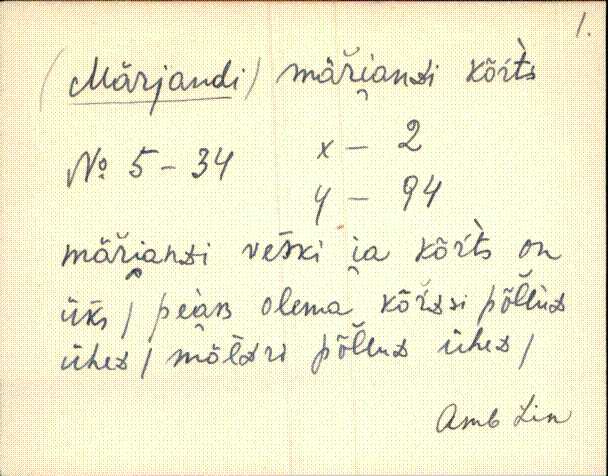 1.
(Märjandi) mäři̯anᴅi kõŕt̀s
No 5 - 34 x - 2
y - 94
mäři̯anᴅi veški i̯a kõŕt̀s on
üks / pe̯àʙ olema kõŕᴅsi põl̆luᴅ
üheᴅ / möl̆ᴅri põl̆luᴅ üheᴅ /
Amb Lin